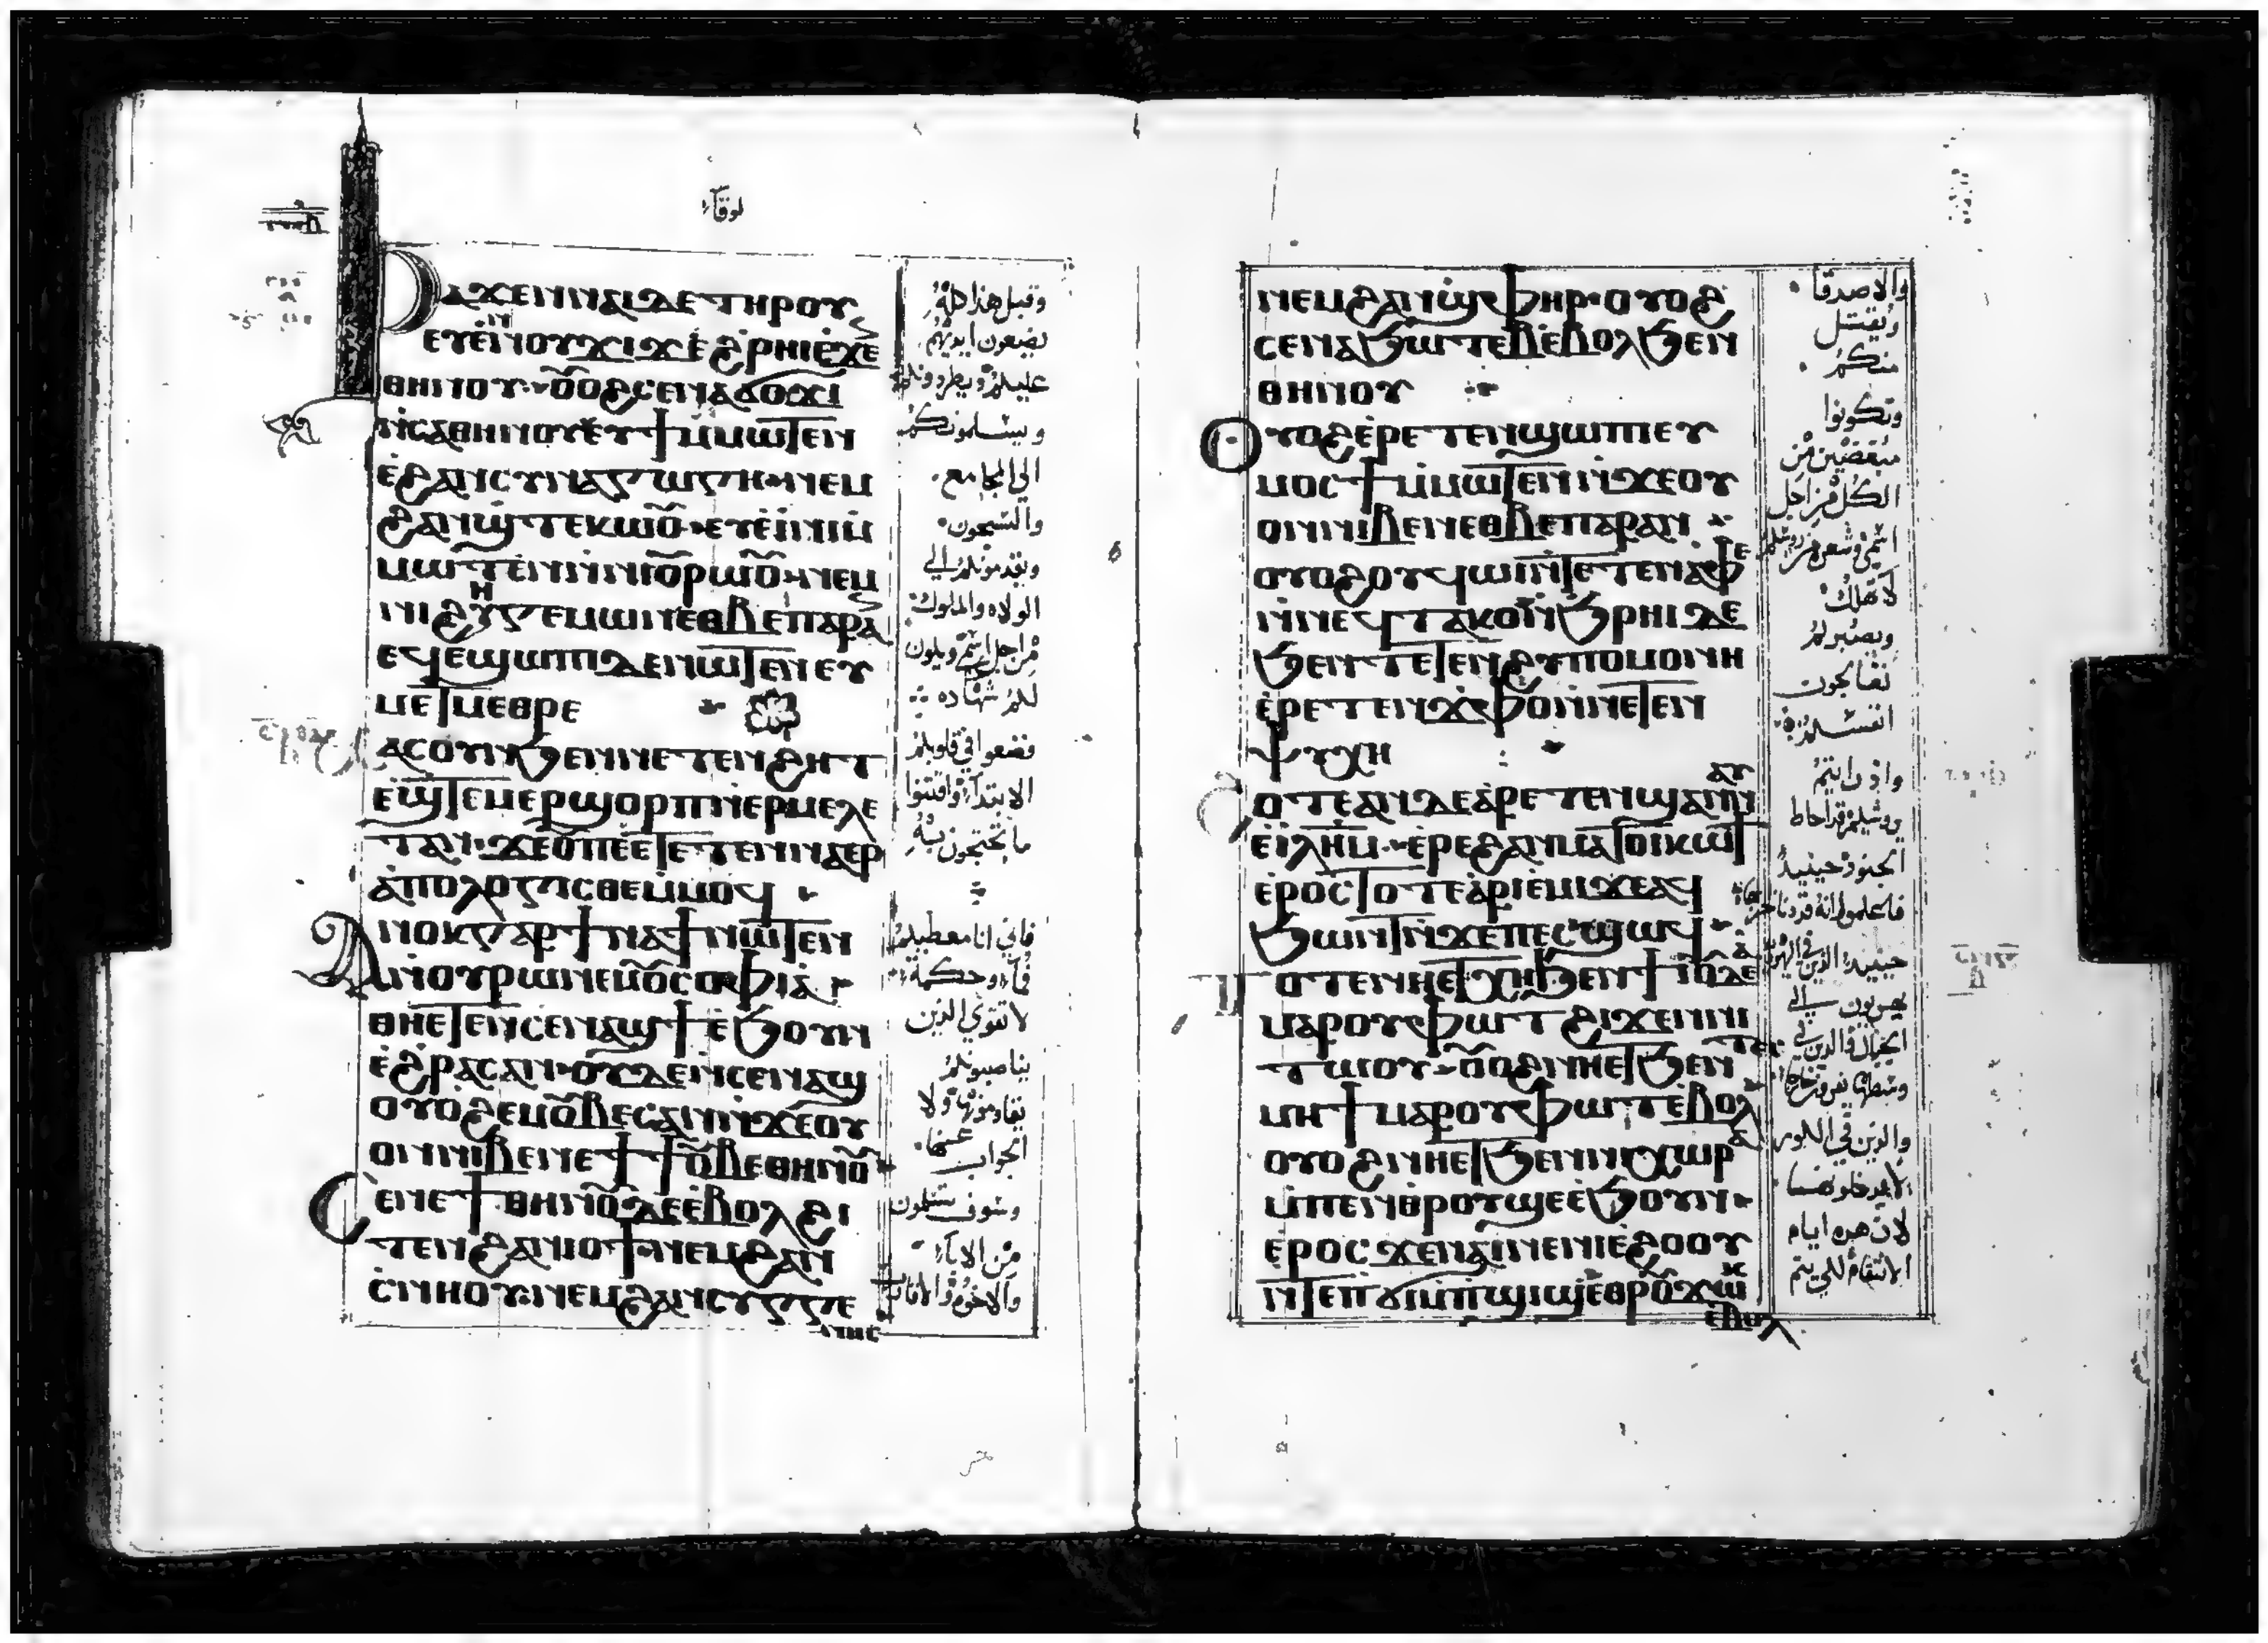 لوقا
ϧⲁϫⲉⲛⲛⲁⲓⲇⲉⲧⲏⲣⲟⲩ
ⲉⲩⲉⲓⲛⲓⲛⲛⲟⲩϫⲓϫⲉϩⲣⲏⲓⲉϫⲉ
ⲑⲏⲛⲟⲩ ⲟⲩⲟϩⲥⲉⲛⲁϭⲟϫⲓ
ⲛⲥⲁⲑⲏⲛⲟⲩⲉⲩϯⲙⲙⲱⲧⲉⲛ
ⲉϩⲁⲛⲥⲩⲛⲁⲅⲱⲅⲏ ⲛⲉⲙ
ϩⲁⲛϣⲧⲉⲕⲱⲟⲩ ⲉⲩⲉⲓⲛⲓⲙ
ⲙⲱⲧⲉⲛⲛⲛⲓⲟⲩⲣⲱⲟⲩ ⲛⲉⲙ
ⲛⲓϩⲏⲅⲉⲙⲱⲛⲉⲑⲃⲉⲡⲁⲣⲁ
ⲉϥⲉϣⲱⲡⲓⲇⲉⲛⲱⲧⲉⲛⲉⲩ
ⲙⲉⲧⲙⲉⲑⲣⲉ
ⲁⲥⲟⲩⲛϧⲉⲛⲛⲉⲧⲉⲛϩⲏⲧ
ⲉϣⲧⲉⲙⲉⲣϣⲟⲣⲡⲛⲉⲣⲙⲉⲗⲉ
ⲧⲁⲛ ϫⲉⲟⲩⲡⲉⲉⲧⲉⲧⲉⲛⲛⲁⲉⲣ
ⲁⲡⲟⲗⲟⲅⲓⲥⲑⲉⲙⲙⲟϥ
ⲁⲛⲟⲕⲅⲁⲣϯⲛⲁϯⲛⲱⲧⲉⲛ
ⲛⲟⲩⲣⲱⲛⲉⲙⲟⲩⲥⲟⲫⲓⲁ
ⲑⲏⲉⲧⲉⲛⲥⲉⲛⲁϣϯⲉϧⲟⲩⲛ
ⲉϩⲣⲁⲥⲁⲛ ⲟⲩⲇⲉⲛⲥⲉⲛⲁϣ
ⲟⲩⲟϩⲉⲙⲟⲩⲃⲉⲥⲁⲛⲛϫⲉⲟⲩ
ⲟⲛⲛⲓⲃⲉⲛⲉⲧϯⲟⲩⲃⲉⲑⲏⲛⲟⲩ
ⲥⲉⲛⲉϯⲑⲏⲛⲟⲩⲇⲉⲉⲃⲟⲗϩⲓ
ⲧⲉⲛϩⲁⲛⲓⲟϯⲛⲉⲙϩⲁⲛ
ⲥⲛⲏⲟⲩ ⲛⲉⲙϩⲁⲛⲥⲩⲅⲅⲉ
ⲛⲏⲥ
وقبل هذا كله
يضعون ايديهم
عليكم ويطردونكم
ويسلمونكم
الى المجامع
والسجون
ويقدمونكم الى
الولاه والملوك
من اجل اسمي ويكون
لكم شهاده
فضعوا في قلوبكم
الابتداء وافتنوا
ما تحتجون به
فاني انا معطيكم
فماً وحكمة
لا تقوى الذين
يناصبونكم
يقاومونها ولا
الجواب عنها
وسوف تسلمون
من الاباء
والاخوة والاقارب
ⲛⲉⲙϩⲁⲛϣⲫⲏⲣ ⲟⲩⲟϩ
ⲥⲉⲛⲁϧⲱⲧⲉⲃⲉⲃⲟⲗϧⲉⲛ
ⲑⲏⲛⲟⲩ
ⲟⲩⲟϩⲉⲣⲉⲧⲉⲛϣⲱⲡⲓⲉⲩ
ⲙⲟⲥϯⲙⲙⲱⲧⲉⲛⲛϫⲉⲟⲩ
ⲟⲛⲛⲓⲃⲉⲛⲉⲑⲃⲉⲡⲁⲣⲁⲛ
ⲟⲩⲟϩⲟⲩϥⲱⲓⲛⲧⲉⲧⲉⲛⲁⲫⲉ
ⲛⲛⲉϥⲧⲁⲕⲟ ⲛϧⲣⲏⲓⲇⲉ
ϧⲉⲛⲧⲉⲧⲉⲛϩⲩⲡⲟⲙⲟⲛⲏ
ⲉⲣⲉⲧⲉⲛϫⲫⲟⲛⲛⲉⲧⲉⲛ
ⲯⲩⲭⲏ
ⲟⲧⲉⲁⲛⲇⲉⲁⲣⲉⲧⲉⲛϣⲁⲛⲛⲁⲩ
ⲉⲓⲗⲏⲙ ⲉⲣⲉϩⲁⲛⲙⲁⲧⲟⲓⲕⲱϯ
ⲉⲣⲟⲥⲧⲟⲧⲉⲁⲣⲓⲉⲙⲓϫⲉⲁϥ
ϧⲱⲛⲧⲛϫⲉⲡⲉⲥϣⲱϥ
ⲧⲟⲧⲉⲛⲏⲉⲧⲭⲏϧⲉⲛϯⲓⲟⲩⲇⲉⲁ
ⲙⲁⲣⲟⲩⲫⲱⲧϩⲓϫⲉⲛⲛⲓ
ⲧⲱⲟⲩ ⲟⲩⲟϩⲛⲏⲉⲧϧⲉⲛⲧⲉⲥ
ⲙⲏϯⲙⲁⲣⲟⲩⲫⲱⲧⲉⲃⲟⲗ
ⲟⲩⲟϩⲛⲏⲉⲧϧⲉⲛⲛⲓⲭⲱⲣⲁ
ⲙⲡⲉⲛⲑⲣⲟⲩϣⲉⲉϧⲟⲩⲛ
ⲉⲣⲟⲥϫⲉⲛⲁⲓⲛⲉⲛⲓⲉϩⲟⲟⲩ
ⲛⲧⲉⲡϭⲓⲙⲡϣⲓϣⲉⲑⲣⲟⲩϫⲱⲕ
ⲉⲃⲟⲗ
والاصدقا
ويقتل
منكم
وتكونوا
مبغضين من
الكل من اجل
اسمي وشعره من روسكم
لا تهلك
وبصبركم
تقتنون
انفسكم
واذا رايتم
يروشليم قد احاط
الجنود حينيذ
فاعلموا انه قد دنا خرابها
حينيذ الذين في اليهودية
يهربون الى
الجبال والذين في
وسطها يفرون خارجا
والذين في الكور
لا يدخلونها
لان هذه ايام
الانتقام لكي يتم